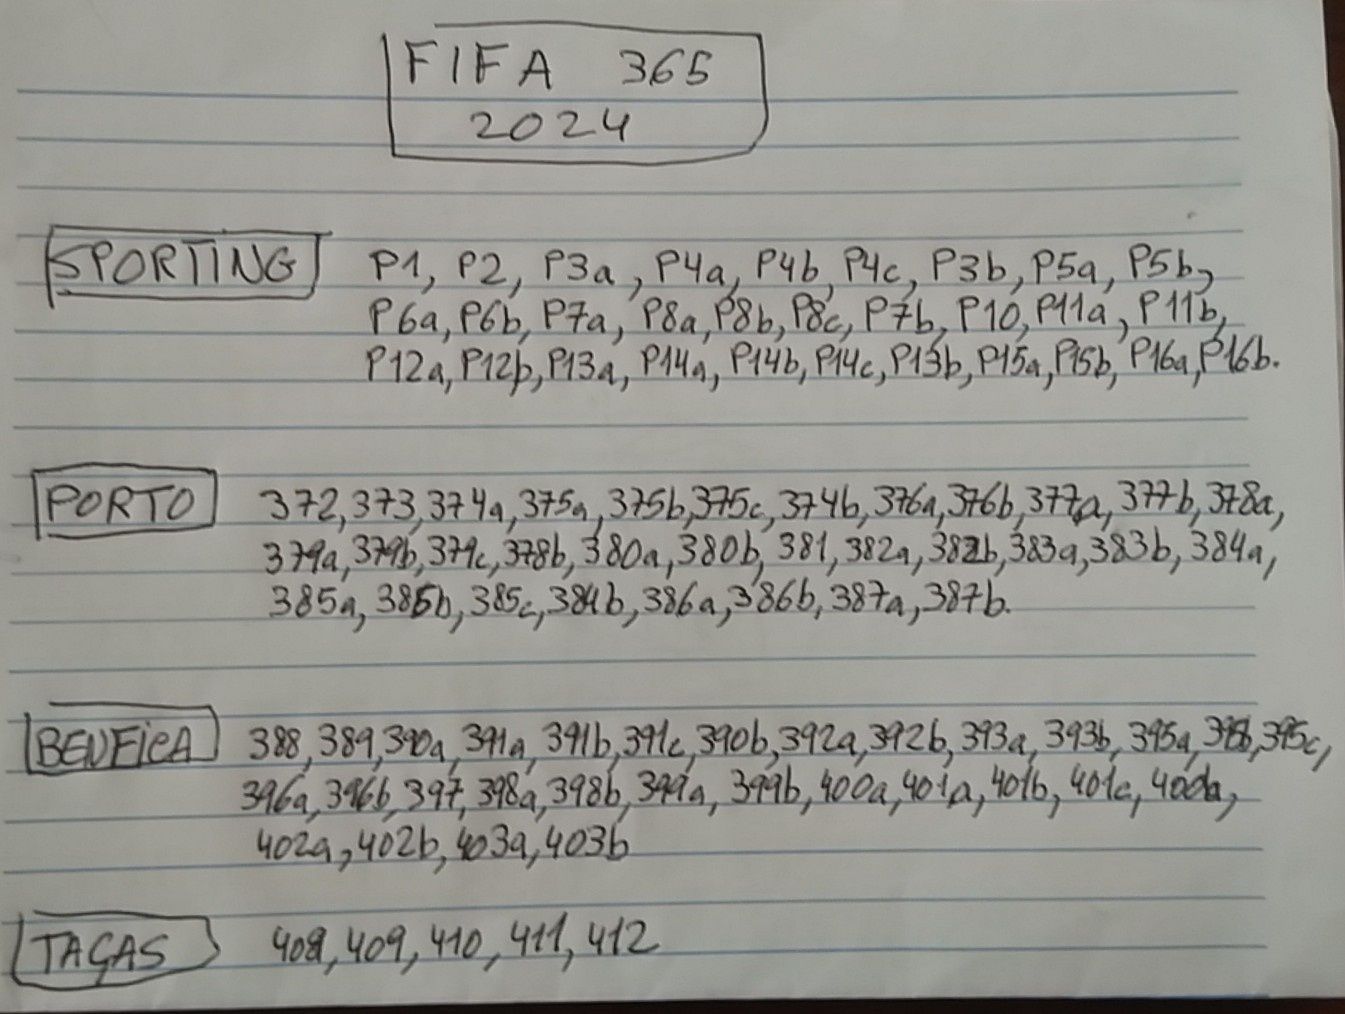 FIFA 365
2024
SPORTING P1, P2, P3a, P4a, P4b, P4c, P3b, P5a, P5b,
P6a, P6b, P7a, P8a, P8b, P8c, P7b, P10, P11a, P11b,
P12a, P12b, P13a, P14a, P14b, P14c, P13b, P15a, P15b, P16a, P16b.
PORTO 372, 373, 374a, 375a, 375b, 375c, 374b, 376a, 376b, 377a, 377b, 378a,
379a, 379b, 379c, 378b, 380a, 380b, 381, 382a, 382b, 383a, 383b, 384a,
385a, 385b, 385c, 384b, 386a, 386b, 387a, 387b.
BENFICA 388, 389, 390a, 391a, 391b, 391c, 390b, 392a, 392b, 393a, 393b, 395a, 395b, 395c,
396a, 396b, 397, 398a, 398b, 399a, 399b, 400a, 401a, 401b, 401c,
402a, 402b, 403a, 403b
TAÇAS 408, 409, 410, 411, 412